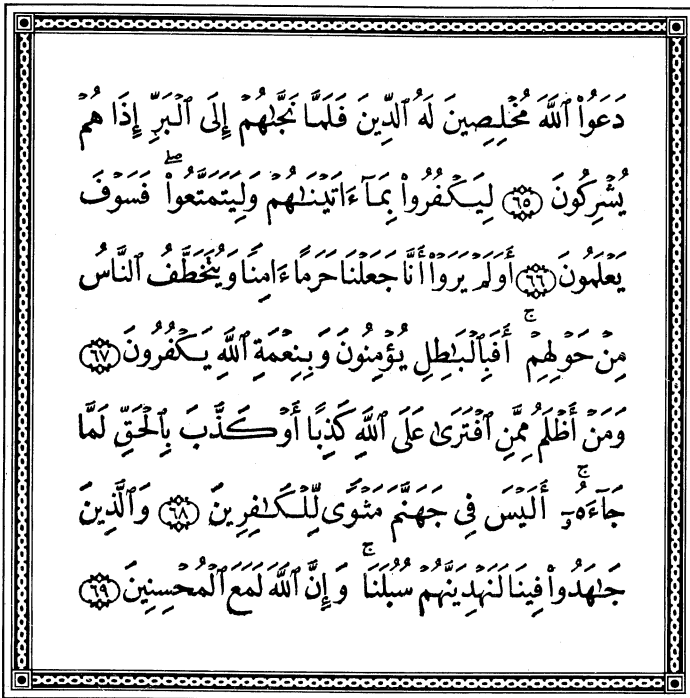 دَعَوُا۟ ٱللَّهَ مُخْلِصِينَ لَهُ ٱلدِّينَ فَلَمَّا نَجَّىٰهُمْ إِلَى ٱلْبَرِّ إِذَا هُمْ
يُشْرِكُونَ ٦٥ لِيَكْفُرُوا۟ بِمَآ ءَاتَيْنَٰهُمْ وَلِيَتَمَتَّعُوا۟ ۖ فَسَوْفَ
يَعْلَمُونَ ٦٦ أَوَلَمْ يَرَوْا۟ أَنَّا جَعَلْنَا حَرَمًا ءَامِنًا وَيُتَخَطَّفُ ٱلنَّاسُ
مِنْ حَوْلِهِمْ ۚ أَفَبِٱلْبَٰطِلِ يُؤْمِنُونَ وَبِنِعْمَةِ ٱللَّهِ يَكْفُرُونَ ٦٧
وَمَنْ أَظْلَمُ مِمَّنِ ٱفْتَرَىٰ عَلَى ٱللَّهِ كَذِبًا أَوْ كَذَّبَ بِٱلْحَقِّ لَمَّا
جَآءَهُۥٓ ۚ أَلَيْسَ فِى جَهَنَّمَ مَثْوًى لِّلْكَٰفِرِينَ ٦٨ وَٱلَّذِينَ
جَٰهَدُوا۟ فِينَا لَنَهْدِيَنَّهُمْ سُبُلَنَا ۚ وَإِنَّ ٱللَّهَ لَمَعَ ٱلْمُحْسِنِينَ ٦٩